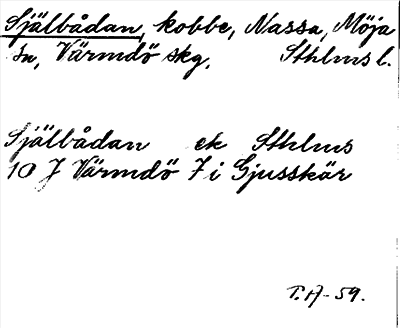 Själbådan, kobbe, Nassa, Möja
sn, Värmdö skg. Sthlms l.
Själbådan ek Sthlms
10 J Värmdö 7 i Gjusskär
T. H - 59.